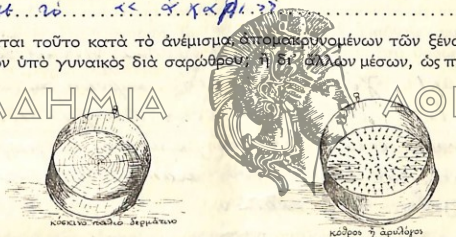 τὸ
ται τοῦτο κατὰ τὸ ἀνέμισμα, ἀπομακρυνομένων τῶν ξένω
ν ὑπὸ γυναικὸς διὰ σαρώθρου; ἢ δι' ἄλλων μέσων, ὡς π
ΔΗΜΙΑ ΑΘΗ
κόσκινο παλιὸ δερμάτινο
κόθρος ἢ ἀριλόγος